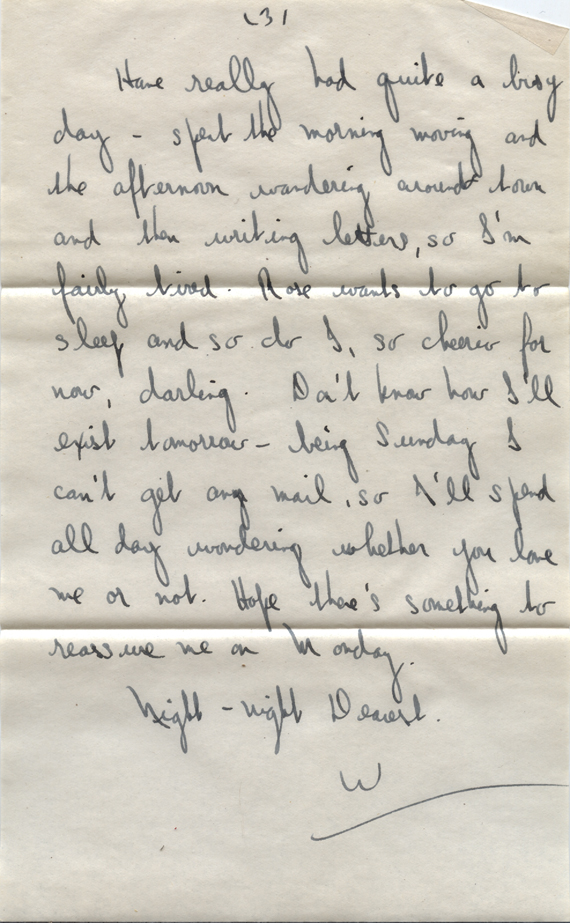 (3)
Have really had quite a busy
day - spent the morning moving and
the afternoon wandering around town
and then writing letters, so I'm
fairly tired. Rose wants to go to
sleep and so do I, so cheerio for
now, darling. Don't know how I'll
exist tomorrow - being Sunday I
can't get any mail, so I'll spend
all day wondering whether you love
me or not. Hope there's something to
reassure me on Monday.
Night-night Dearest.
W